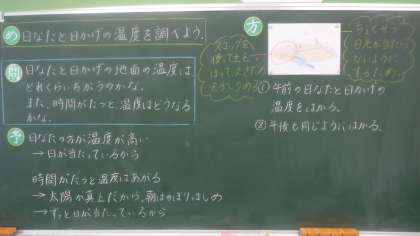 め 日なたと日かげの温度を調べよう。
問 日なたと日かげの地面の温度は
どれくらいちがうのかな。
また、時間がたつと、温度はどうなる
かな。
予 日なたの方が温度が高い
→日が当たっているから
時間がたつと温度はあがる
→太陽が真上だから、朝はのぼりはじめ
→ずっと日が当たっているから
方
スコップを
使って土を
ちょくせつ
日光が当たら
ないように
するため。
① 午前の日なたと日かげの
温度をはかる。
② 午後も同じようにはかる。